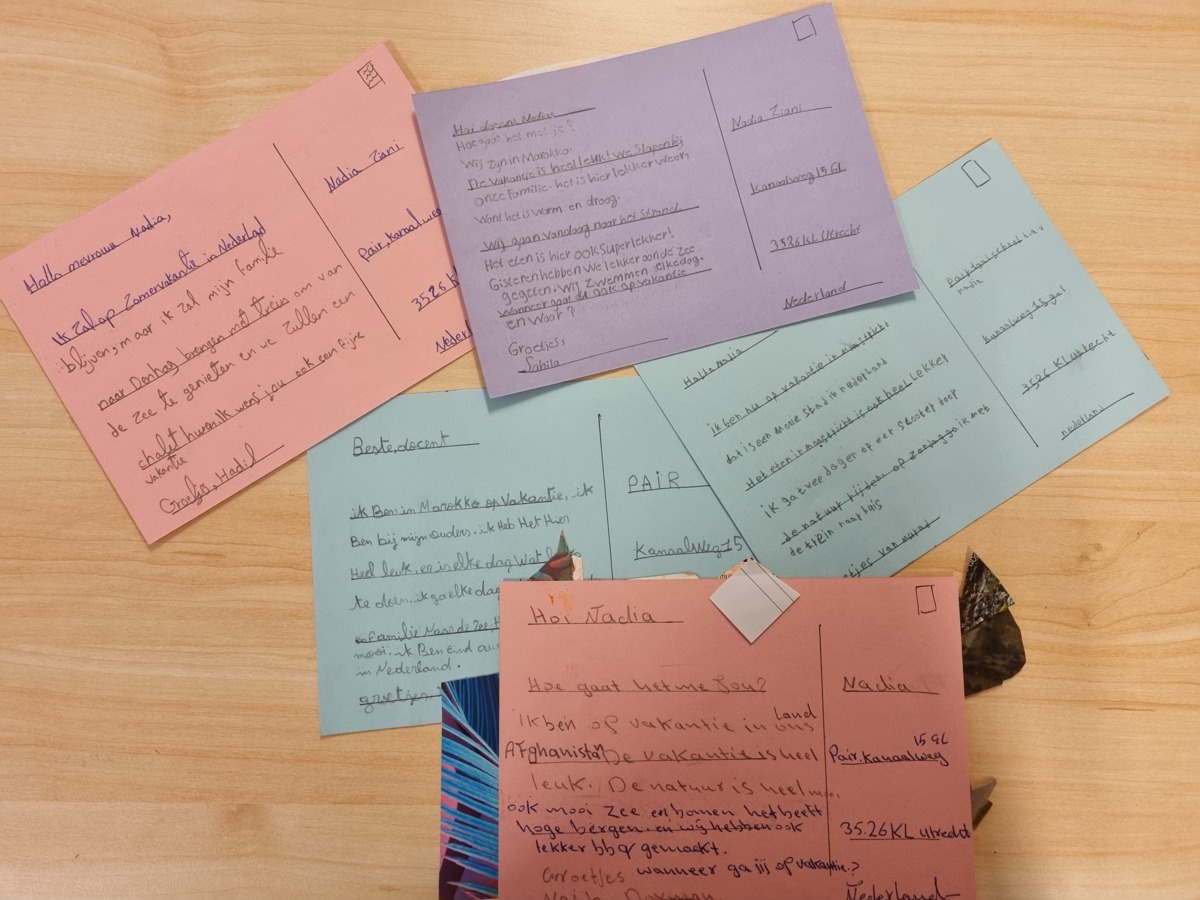 Hallo mevrouw Nadia,
Ik zal op Zomervakantie in Nederland
blijven, maar ik zal mijn familie
naar Denhag brengen met trein om van
de zee te genieten en we zullen een
chalet huren. Ik wens jou ook een fijne
vakantie
Groetjes, Hadil
Nadia Ziani
Pair, kanaalweg
3526
Nederl
Hoi docent Nadia
Hoe gaat het met je?
Wij zijn in Marokko.
De vakantie is heel leuk! We Slapen bij
onze Familie. het is hier lekker weer,
Want het is warm en droog.
Wij gaan vandaag naar het Strand.
Het eten is hier ook superlekker!
Gisteren hebben we lekker aan de Zee
gegeten. Wij zwemmen elke dag.
Wanneer gaat op vakantie
en waar?
Groetjes,
Sahila
Nadia Ziani
Kanaalweg 15 GL
3526 KL Utrecht
Nederland
Hallo Nadia
ik ben nu op vakantie in
dat is een mooie stad in nederland
Het eten in is ook heel lekker
ik ga twee dagen op een scooter door
de natuur rijden op zondag ga ik met
de trein naar huis
nadia
kanaalweg
3526 KL
nederland
Beste, docent
ik Ben in Marokko op Vakantie, ik
Ben bij mijn ouders. ik Heb Het Hier
Heel leuk, er is elke dag Wat
te doen. ik ga elke dag
en Familie Naar de Zee,
mooi. ik Ben eind
in Nederland.
groetjes
PAIR
Kanaalweg 15
Hoi Nadia
Hoe gaat het me Jou?
Ik ben op vakantie in ons land
Afghanistan De vakantie is heel
leuk. De natuur is heel
ook mooi zee en bomen het heeft
hoge bergen. en wij hebben ook
lekker bbq gemaakt.
Groetjes wanneer ga jij op vakantie?
Nadia
15 GL
Pair, kanaalweg
35.26 KL utrecht
Nederland